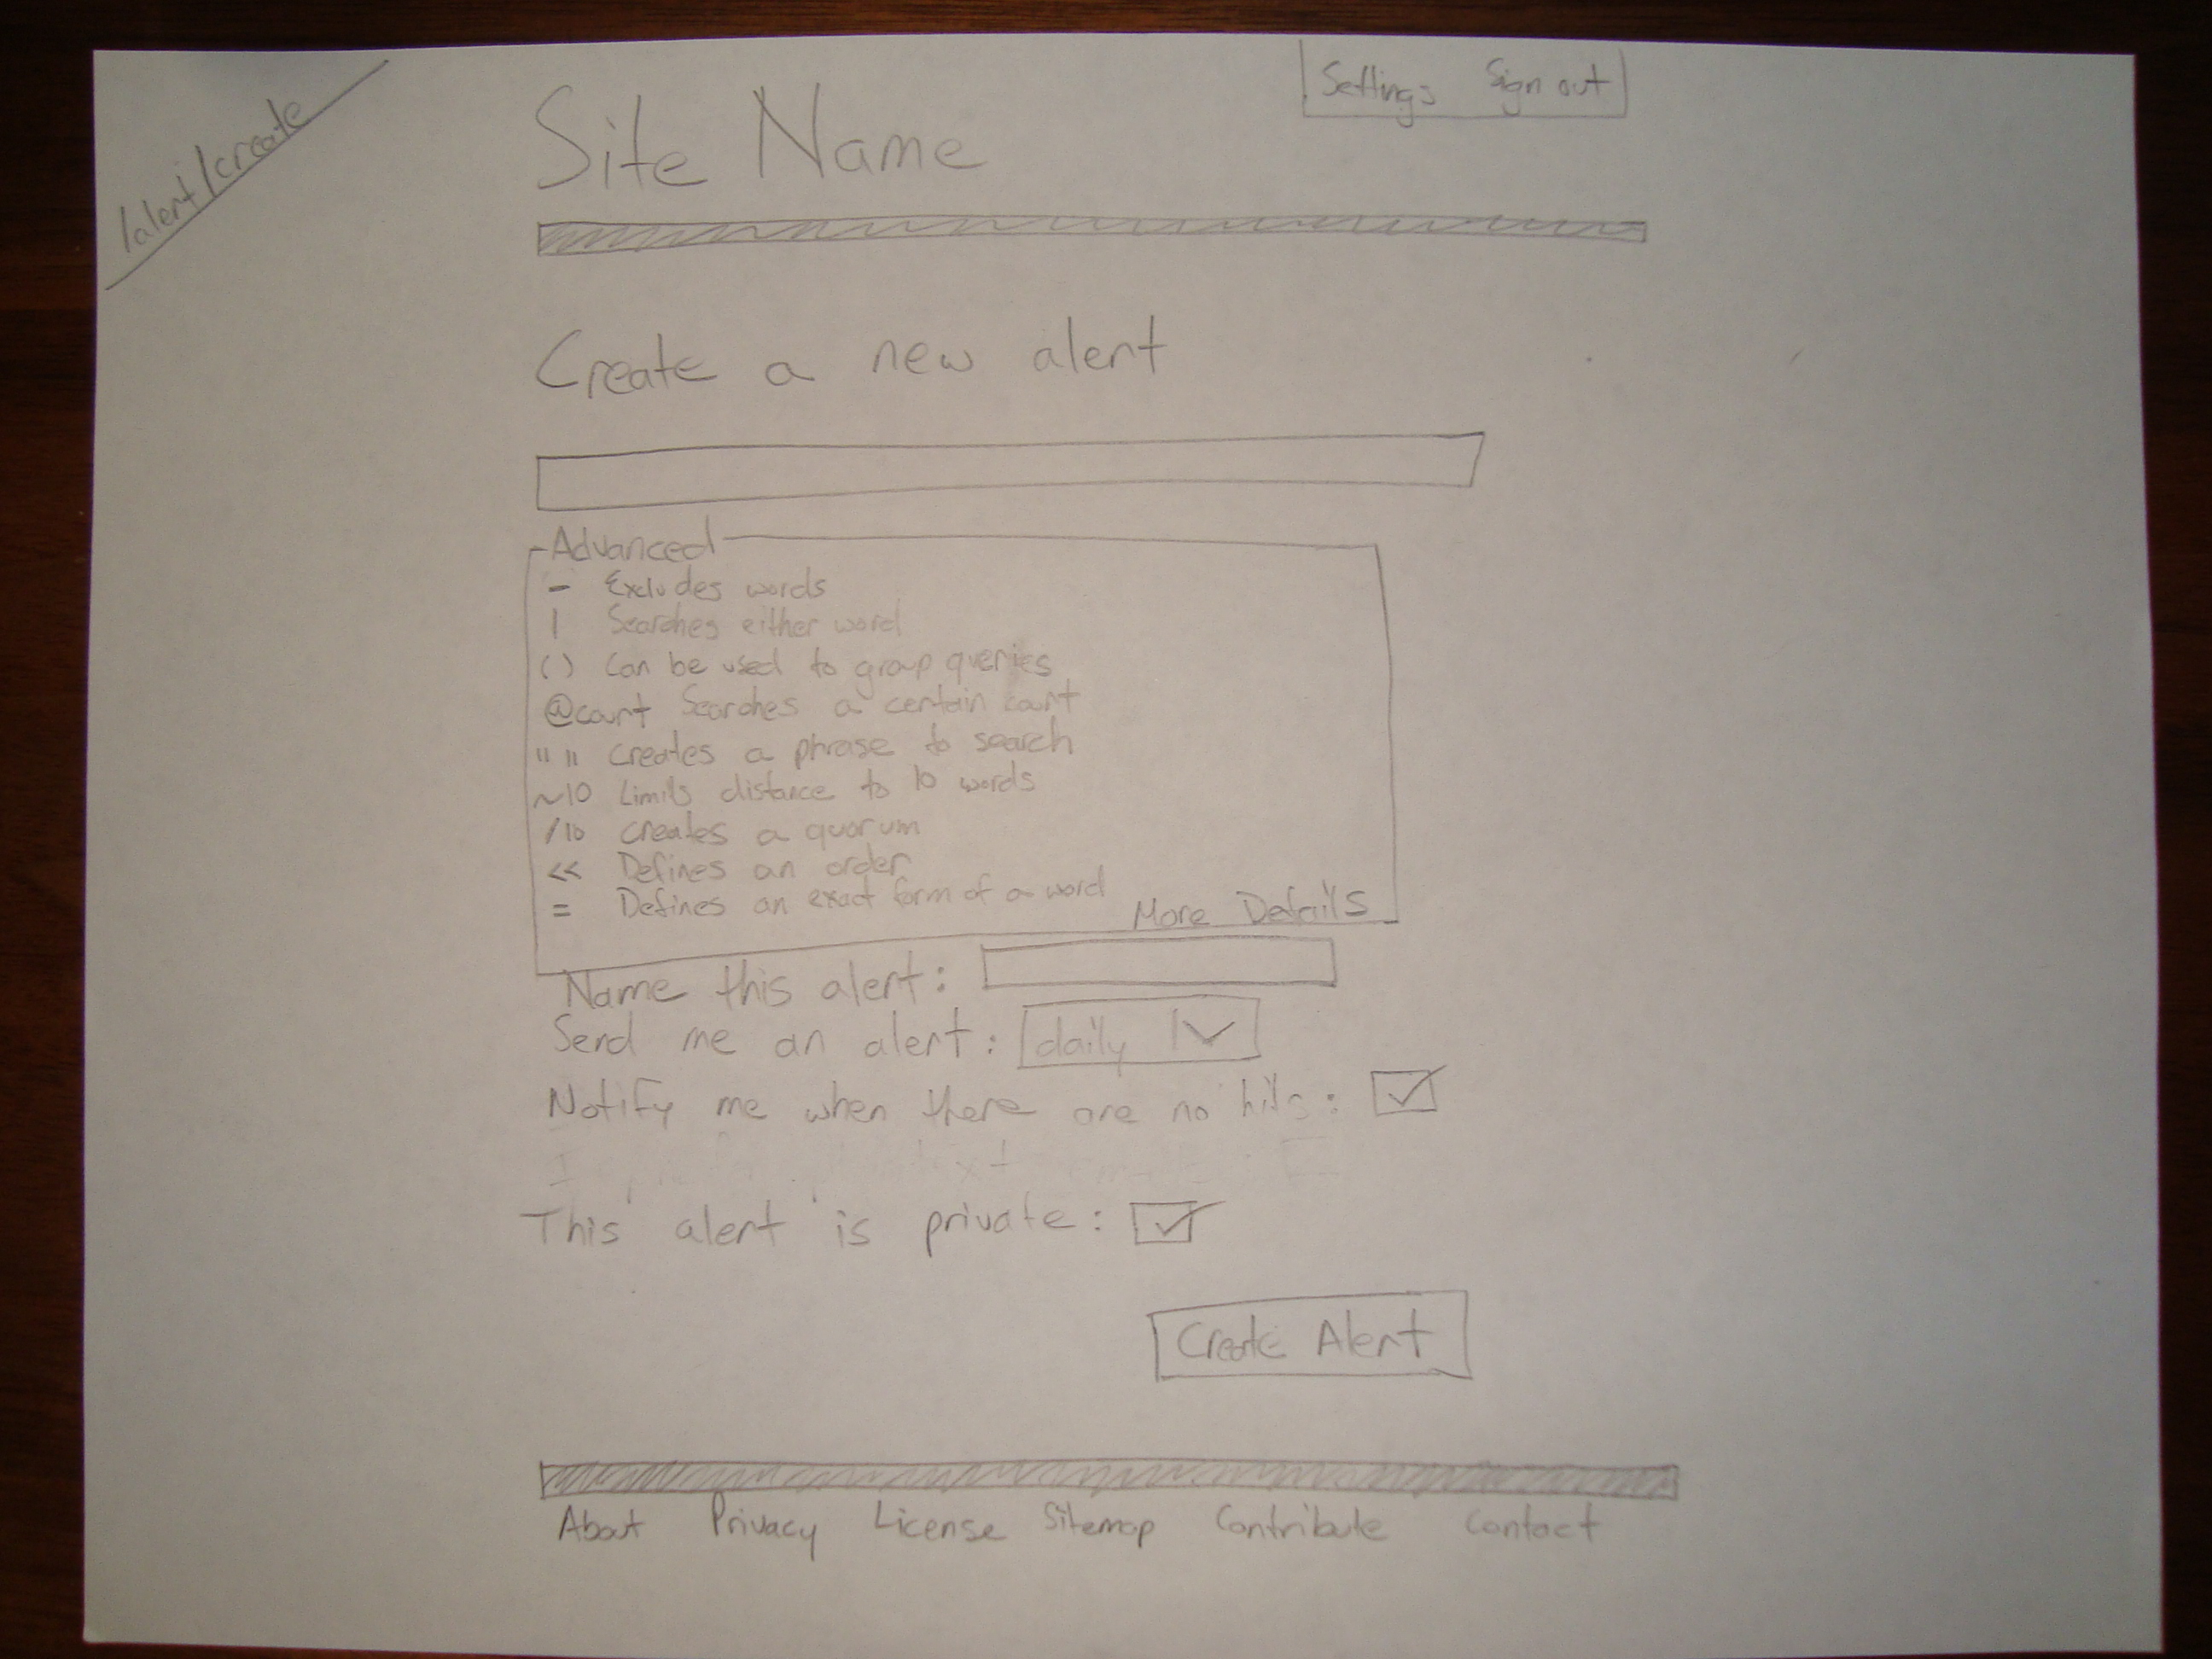 /alert/create
Settings Sign out
Site Name
Create a new alert
Advanced
- Excludes words
| Searches either word
( ) Can be used to group queries
@court Searches a certain court
" " Creates a phrase to search
~10 Limits distance to 10 words
/10 creates a quorum
<< Defines an order
= Defines an exact form of a word
More Details
Name this alert:
Send me an alert: daily
Notify me when there are no hits:
This alert is private:
Create Alert
About Privacy License Sitemap Contribute Contact